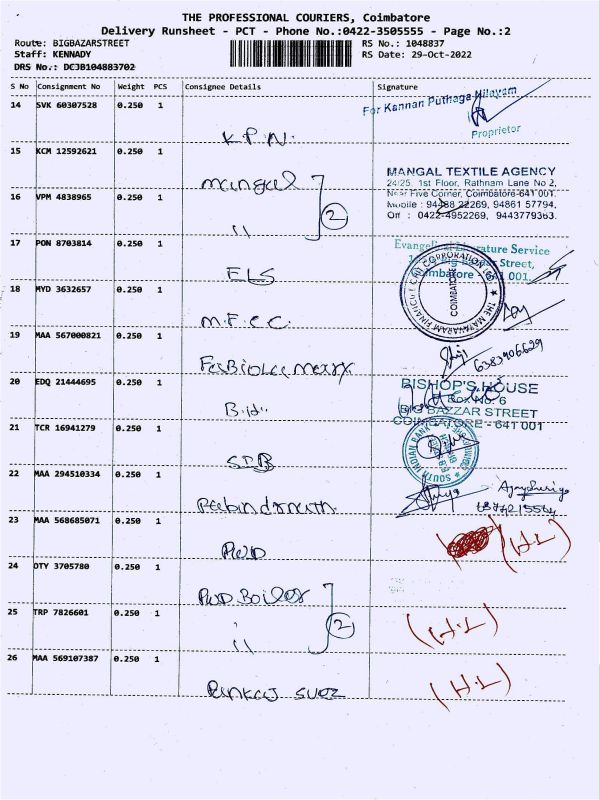 THE PROFESSIONAL COURIERS, Coimbatore
Delivery Runsheet - PCT - Phone No.:0422-3505555 - Page No.:2
Route: BIGBAZARSTREET
RS No.: 1048837
Staff: KENNADY
RS Date: 29-Oct-2022
DRS No.: DCJB104883702
S No Consignment No Weight PCS Consignee Details Signature
14 SVK 60307528 0.250 1
For Kannan Puthaga Nilayam
Proprietor
K.P.N.
15 KCM 12592621 0.250 1
mangal
MANGAL TEXTILE AGENCY
24/25, 1st Floor, Rathnam Lane No 2,
Near Five Corner, Coimbatore-641 001.
Mobile : 94488 22269, 94861 57794,
Off : 0422-4952269, 9443779363.
16 VPM 4838965 0.250 1
2
"
17 PON 8703814 0.250 1
Evangelical Literature Service
Street,
Coimbatore - 641 001.
ELS
18 MYD 3632657 0.250 1
COIMBATORE
M.F.C.C.
19 MAA 567000821 0.250 1
6383906629
20 EDQ 21444695 0.250 1
BISHOP'S HOUSE
Box No. 6
BIG BAZZAR STREET
COIMBATORE - 641 001
21 TCR 16941279 0.250 1
SOUTH INDIAN BANK
SIB
22 MAA 294510334 0.250 1
23 MAA 568685071 0.250 1
PWD
(H.L)
24 OTY 3705780 0.250 1
PWD Boiler
25 TRP 7826601 0.250 1
2
"
(H.L)
26 MAA 569107387 0.250 1
(H.L)